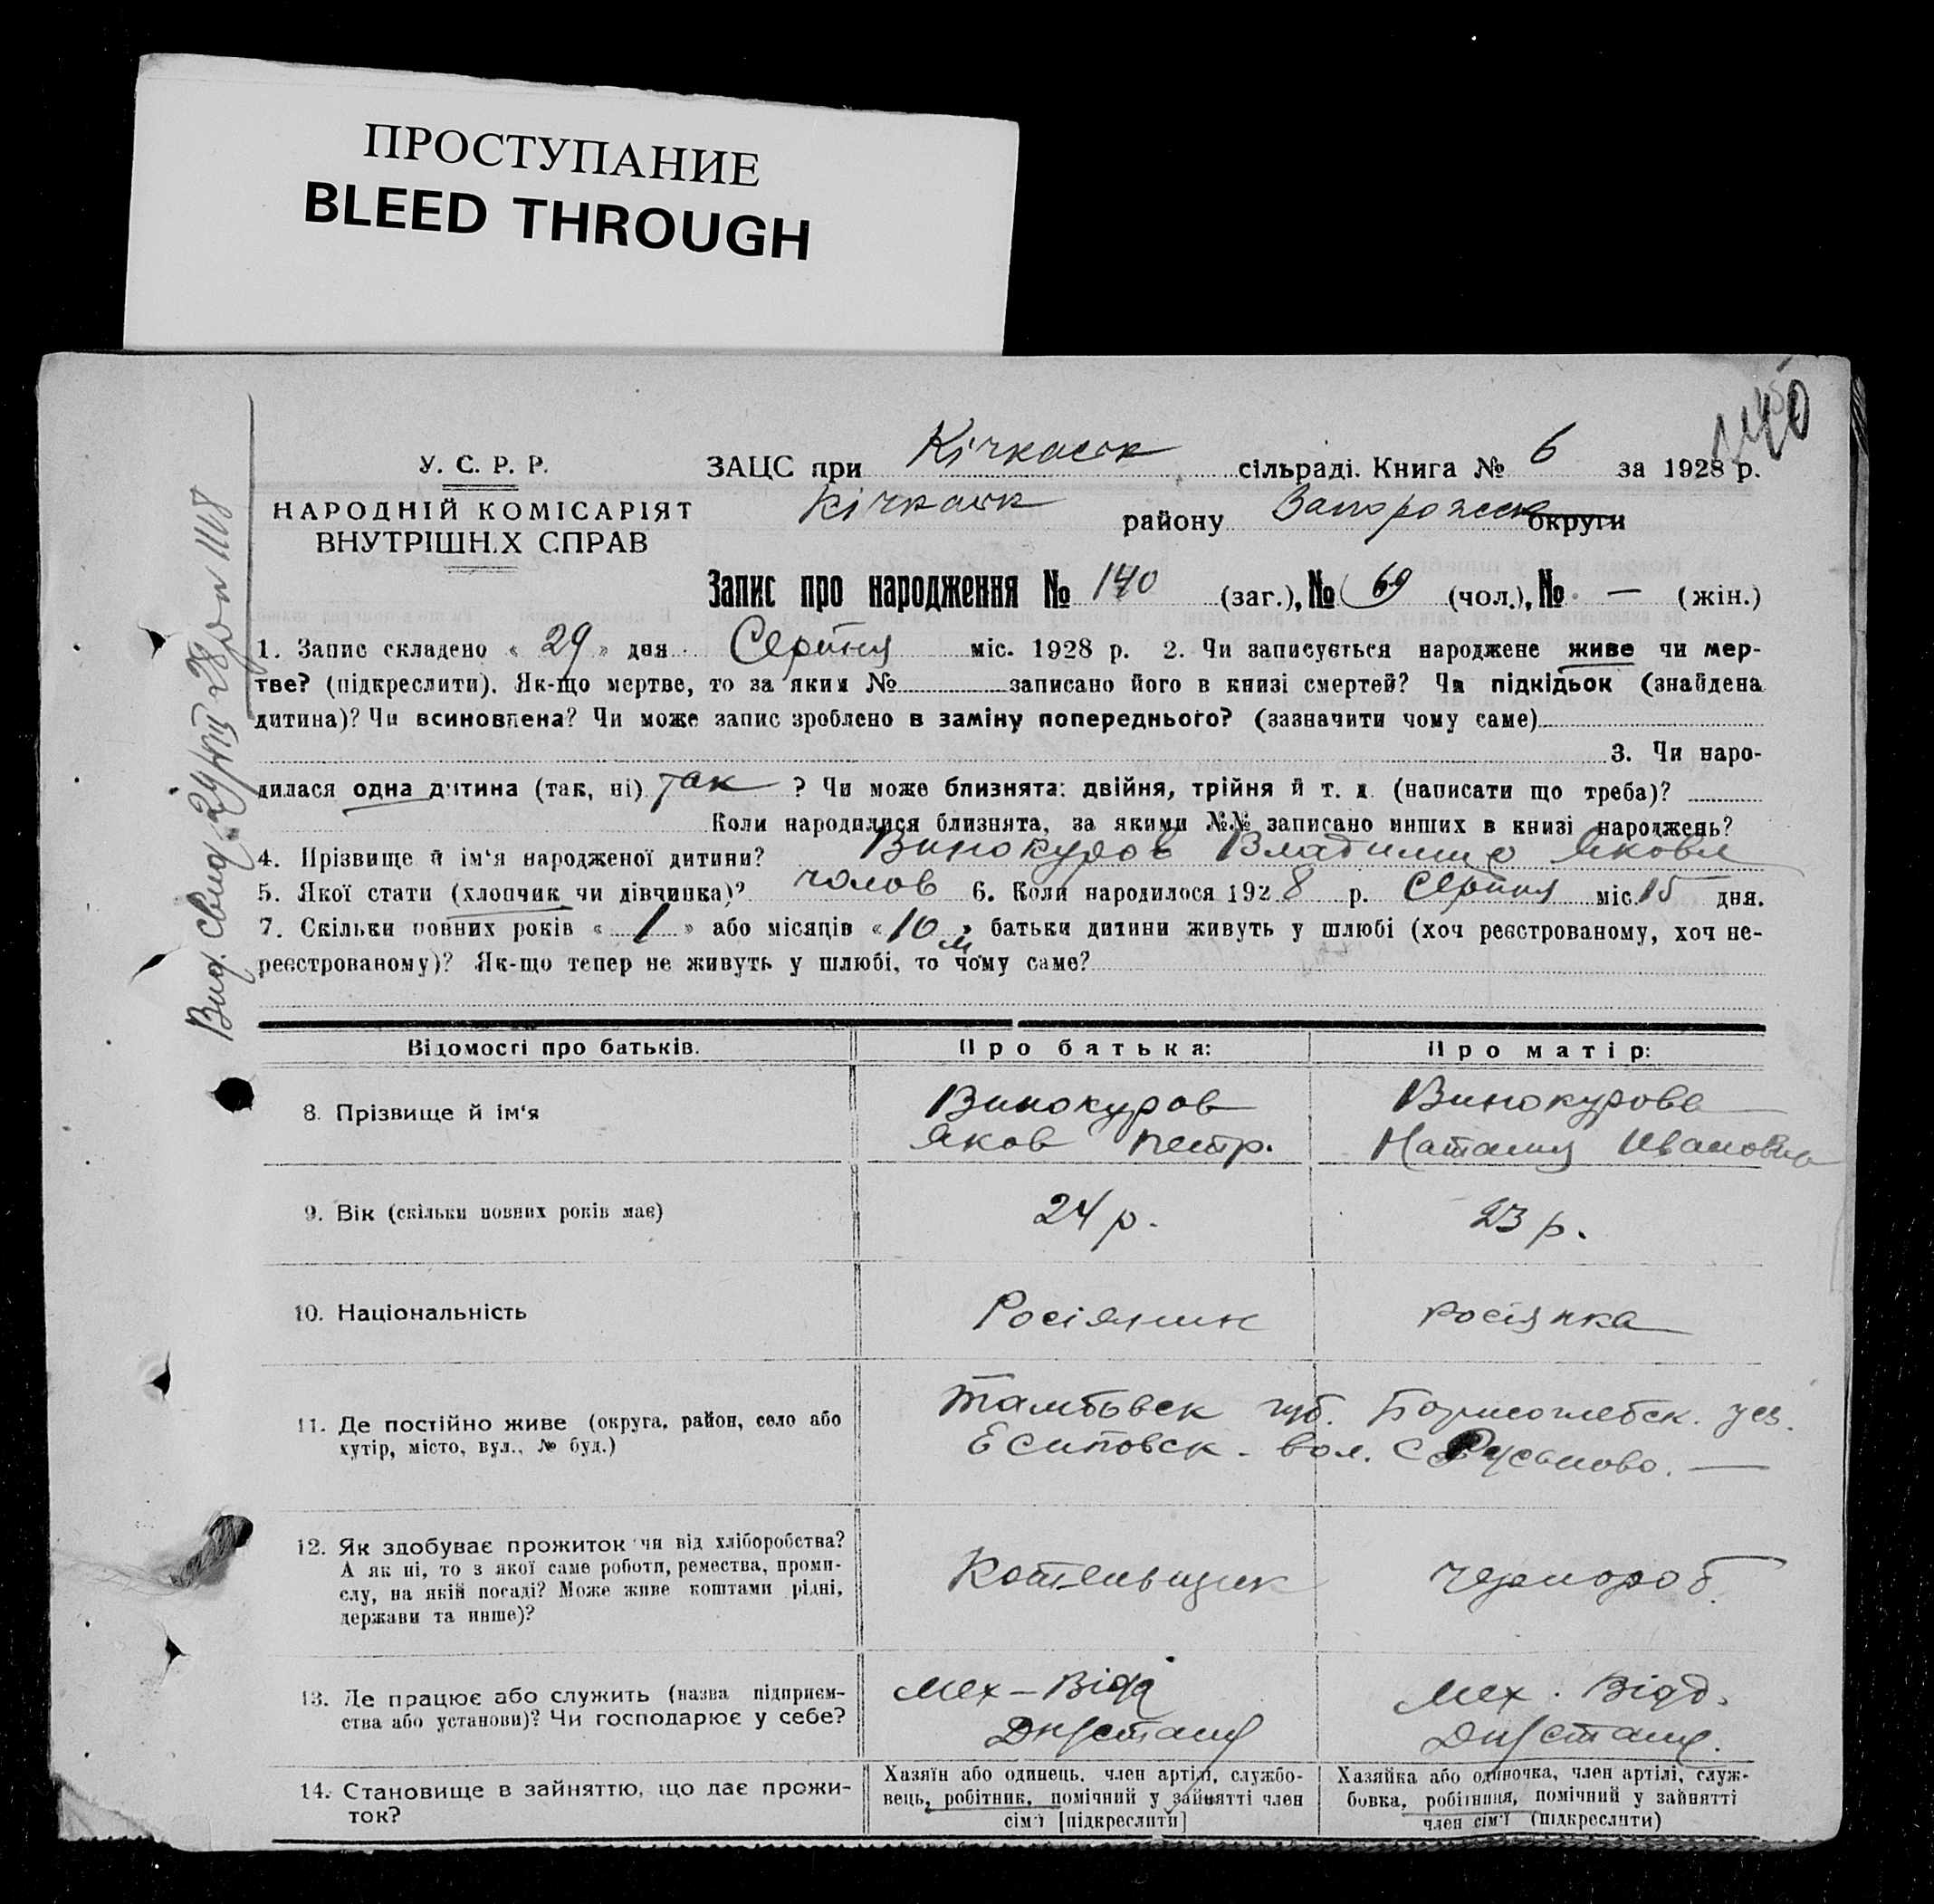 ПРОСТУПАНИЕ
BLEED THROUGH
140
У. С. Р. Р.
НАРОДНІЙ КОМІСАРІЯТ
ВНУТРІШН.Х СПРАВ
ЗАЦС при Кічкаськ сільраді. Книга № 6 за 1928 р.
Кічкаськ району Запорожск округи
Запис про народження № 140 (заг.), № 69 (чол.), № — (жін.)
1. Запис складено « 29 » дня Серпня міс. 1928 р. 2. Чи записується народжене живе чи мер-
тве? (підкреслити). Як-що мертве, то за яким № записано його в книзі смертей? Чи підкідьок (знайдена
дитина)? Чи всиновлена? Чи може запис зроблено в заміну попереднього? (зазначити чому саме)
3. Чи наро-
дилася одна дитина (так, ні) так ? Чи може близнята: двійня, трійня й т. д. (написати що треба)?
Коли народилися близнята, за якими №№ записано инших в книзі народжень?
4. Прізвище й ім‘я народженої дитини? Винокуров Владимир Яковл
5. Якої стати (хлопчик чи дівчинка)? чолов 6. Коли народилося 1928 р. Серпня міс. 15 дня.
7. Скільки повних років « 1 » або місяців « 10 м » батьки дитини живуть у шлюбі (хоч реєстрованому, хоч не-
реєстрованому)? Як-що тепер не живуть у шлюбі, то чому саме?
Вид. свид. 29/VIII-28
Відомості про батьків. Про батька: Про матір:
8. Прізвище й ім‘я
Винокуров
Яков Петр.
Винокурова
Наталия Ивановна
9. Вік (скільки повних років має) 24 р. 23 р.
10. Національність Росіянин росіянка
11. Де постійно живе (округа, район, село або
хутір, місто, вул., № буд.)
Тамбовск губ. Борисоглебск. уез.
Есиповск. вол. с Русаново. —
12. Як здобуває прожиток чи від хліборобства?
А як ні, то з якої саме роботи, ремества, проми-
слу, на якій посаді? Може живе коштами рідні,
держави та инше)?
Котельщик
чорнороб.
13. Де працює або служить (назва підприєм-
ства або установи)? Чи господарює у себе?
Мех – Відд
Дн
Мех. Відд.
Дн
14. Становище в зайняттю, що дає прожи-
ток?
Хазяїн або одинець, член артілі, службо-
вець, робітник, помічний у зайнятті член
сім‘ї [підкреслити]
Хазяйка або одиночка, член артілі, служ-
бовка, робітниця, помічний у зайнятті
член сім‘ї (підкреслити)